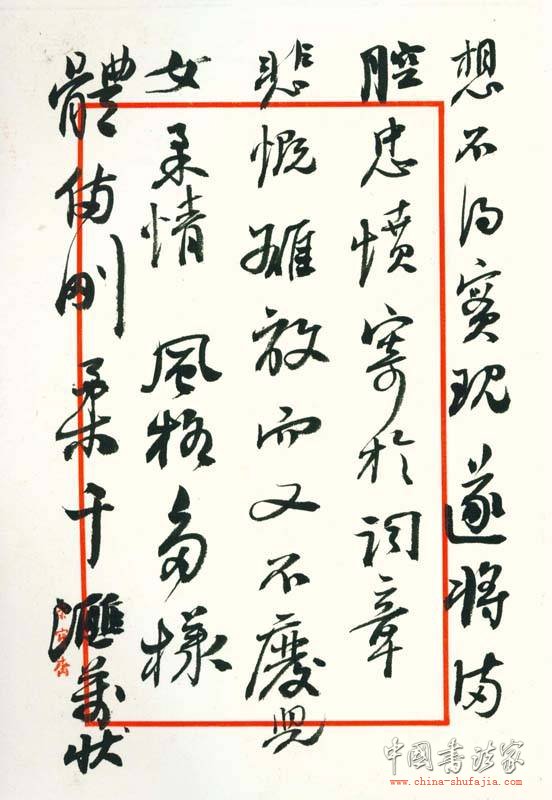 想不得實現遂將滿
腔忠憤寄於詞章
悲慨雄放而又不廢兒
女柔情風格多樣
體備剛柔千滙萬狀
榮寶齋
中國書法家
www.china-shufajia.com